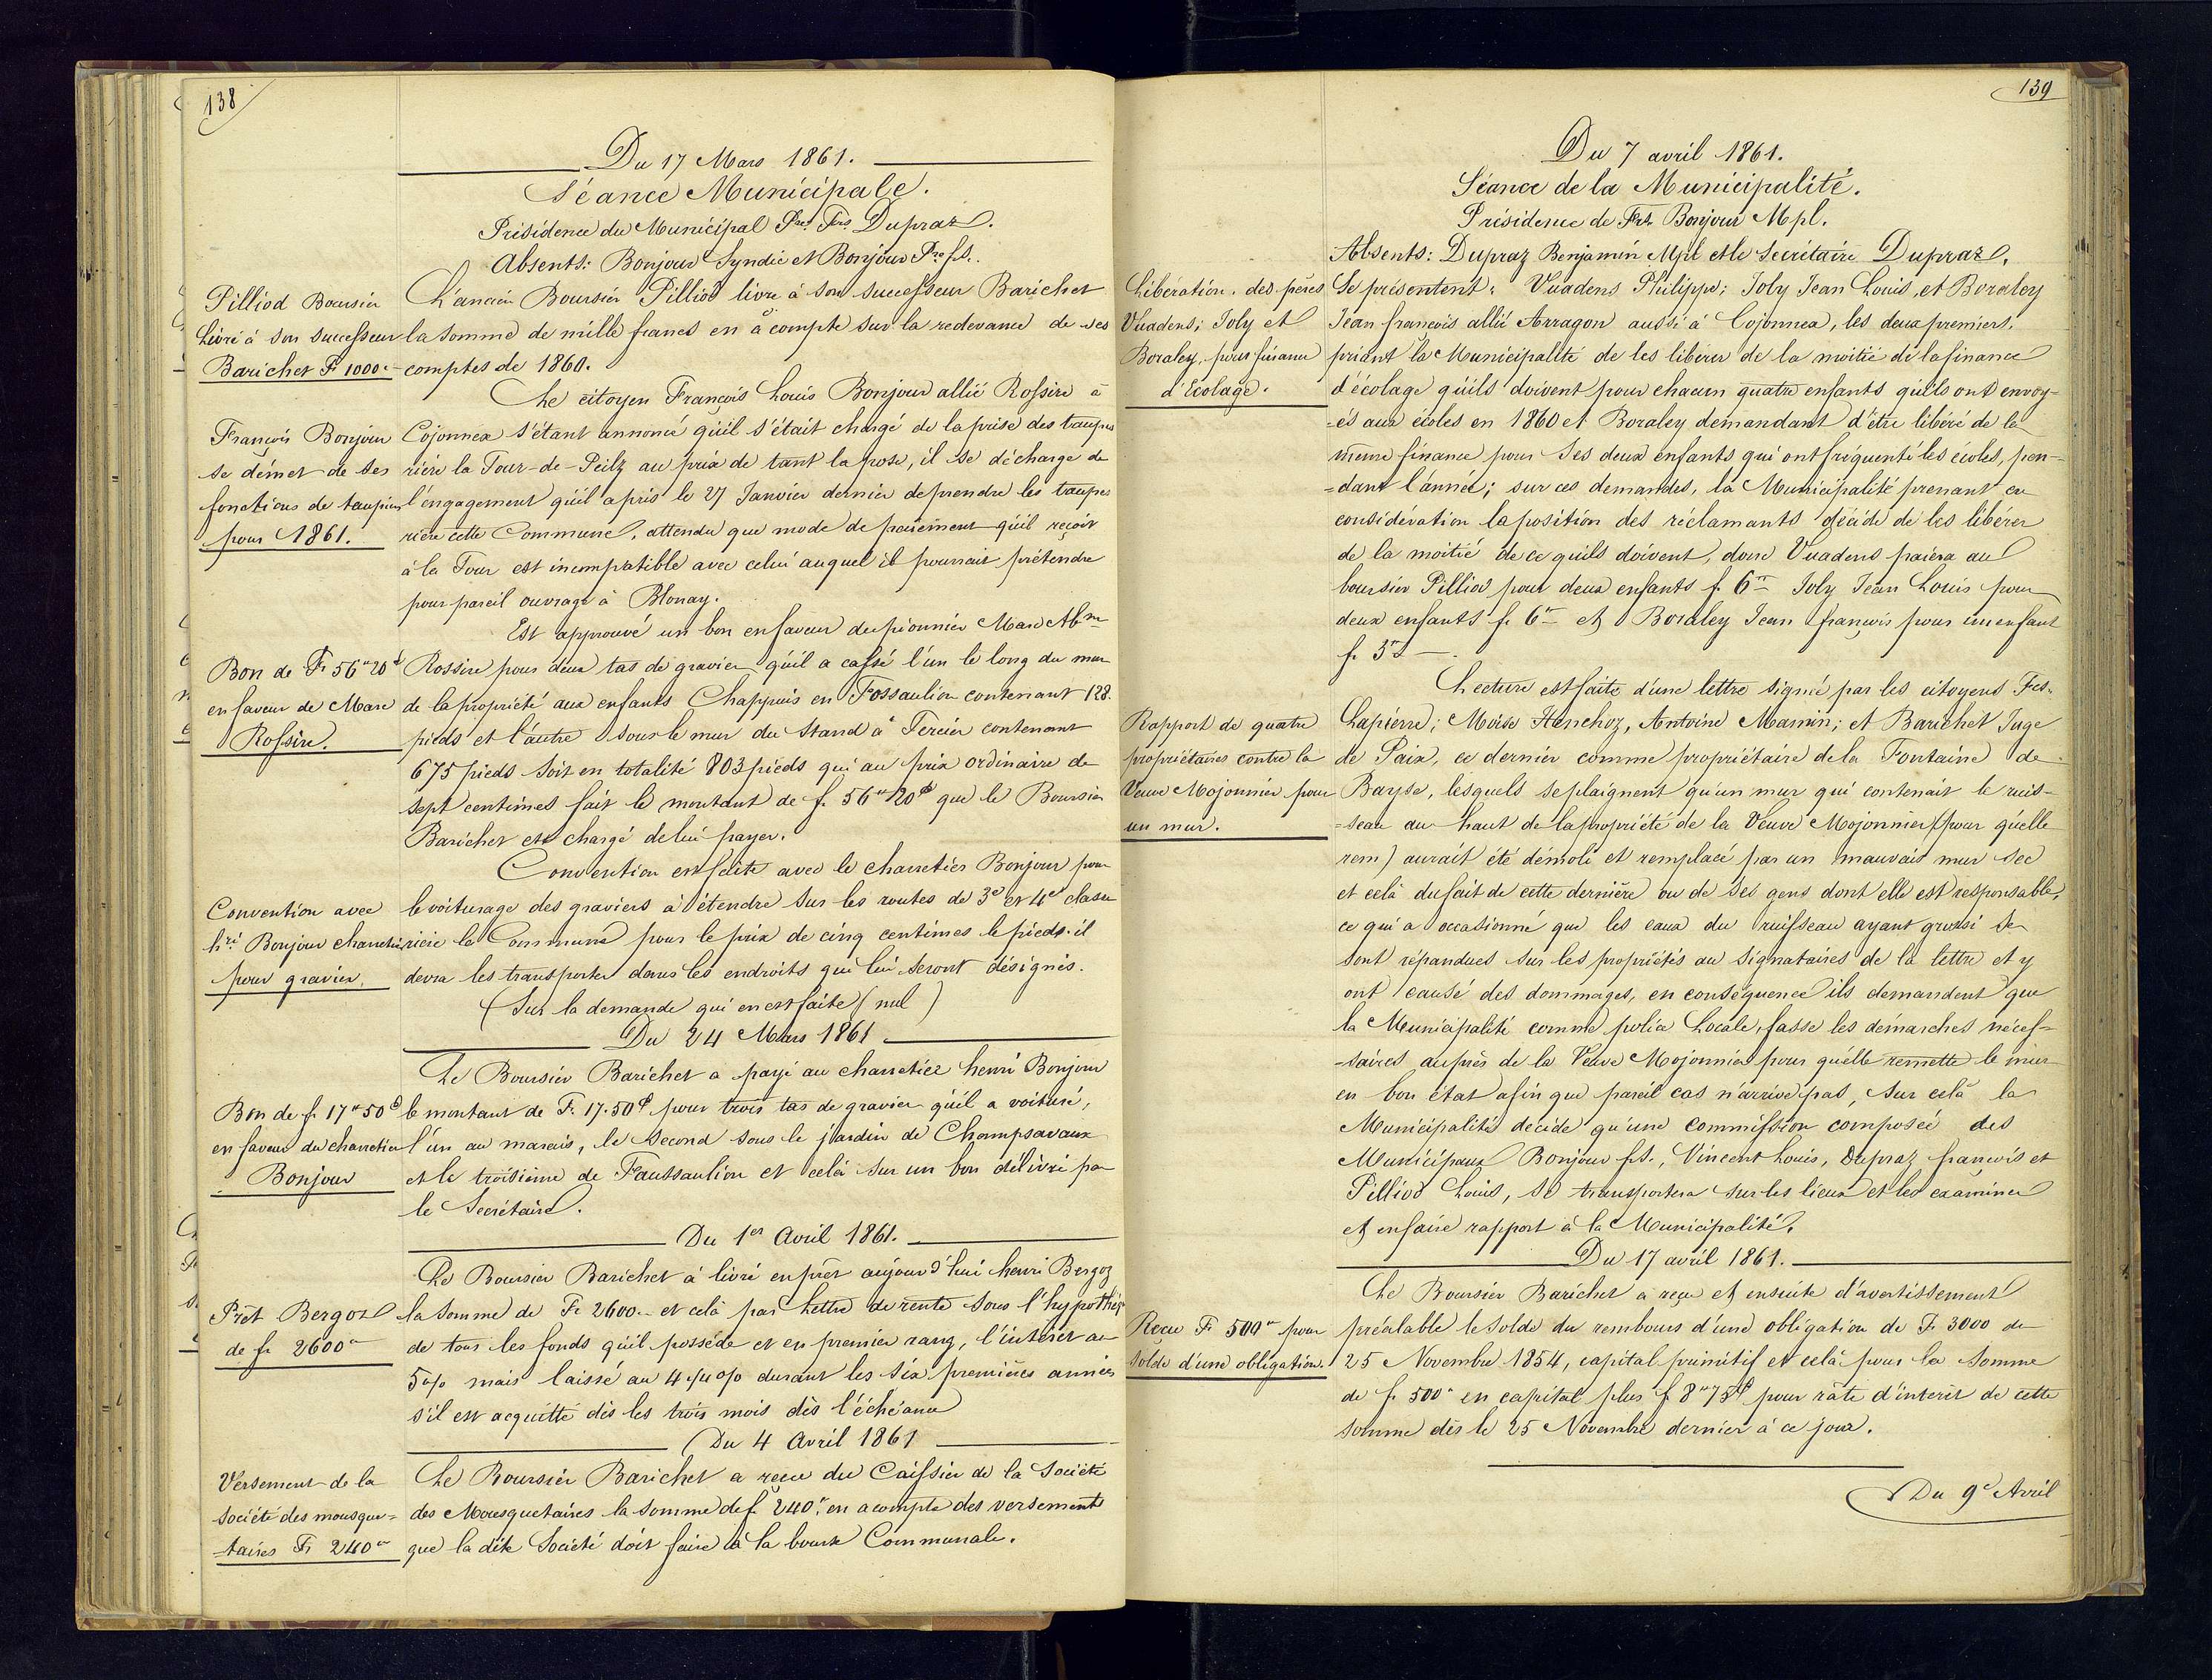 138
Du 17 Mars 1861.
Séance Municipale.
Présidence du Municipal Pre. Fcs. Dupraz.
Absents: Bonjour Syndic et Bonjour Pre fs.
Pilliod Boursier
Livré à son successeur
Barichet Fr 1000.-
L'ancien Boursier Pilliod livre à son successeur Barichet
la somme de mille francs en à compte sur la redevance de ses
comptes de 1860.
François Bonjour
se démet de ses
fonctions de taupier
pour 1861.
Le citoyen François Louis Bonjour allié Rossire à
Cojonnex s'étant annoncé qu'il s'était chargé de la prise des taupes
rière la Tour-de-Peilz au prix de tant la pose, il se décharge de
l'engagement qu'il a pris le 27 Janvier dernier de prendre les taupes
rière cette Commune, attendu que mode de paiement qu'il reçoit
à la Tour est incompatible avec celui auquel il pourrait prétendre
pour pareil ouvrage à Blonay.
Bon de Fr 56"20 ct
en faveur de Marc
Rossire.
Est approuvé un bon en faveur du pionnier Marc Abm
Rossire pour deux tas de gravier qu'il a cassé l'un le long du mur
de la propriété aux enfants Chappuis en Fossaulion contenant 128.
pieds et l'autre sous le mur du Stand à Tercier contenant
675 pieds soit en totalité 803 pieds qui au prix ordinaire de
sept centimes fait le montant de f. 56"20 ct que le Boursier
Barichet est chargé de lui payer.
Convention avec
hri Bonjour charretier
pour gravier.
Convention est faite avec le charretier Bonjour pour
le voiturage des graviers à étendre sur les routes de 3e et 4e classe
rière la Commune pour le prix de cinq centimes le pieds. il
devra les transporter dans les endroits qui lui seront désignés.
(Sur la demande qui en est faite (nul)
Du 24 Mars 1861
Bon de f. 17"50 ct
en faveur du charretier
Bonjour
Le Boursier Barichet a payé au charretier henri Bonjour
le montant de Fr. 17.50 ct pour trois tas de gravier qu'il a voituré,
l'un au marais, le second sous le jardin de Champsavaux
et le troisième de Faussaulion et celà sur un bon délivré par
le Secrétaire.
Du 1er Avril 1861.
Prêt Bergoz
de fr 2600"
Le Boursier Barichet à livré en prêt aujourd'hui henri Bergoz
la somme de Fr 2600.- et celà par Lettre de rente sous l'hypothèq
de tous les fonds qu'il possède et en premier rang, l'intérêt au
5% mais laissé au 4 1/4 % durant les six premières années
s'il est acquitté dès les trois mois dès l'échéance
Du 4 Avril 1861
Versement de la
Société des mousque=
=taires Fr 240"
Le Boursier Barichet a reçu du Caissier de la Société
des Mousquetaires la somme de f. 240" en acompte des versements
que la dite Société doit faire à la bourse Communale.
139
Du 7 avril 1861.
Séance de la Municipalité.
Présidence de Frs. Bonjour Mpl.
Absents: Dupraz Benjamin Mpl et le Secrétaire Dupraz.
Libération. des pères
Vuadens; Joly et
Boraley, pour finance
d'Ecolage.
Se présentent: Vuadens Philippe; Joly Jean Louis, et Boraley
Jean françois allié Arragon aussi à Cojonnex, les deux premiers,
priant la Municipalité de les libérer de la moitié de la finance
d'écolage qu'ils doivent pour chacun quatre enfants qu'ils ont envoy-
=és aux écoles en 1860 et Boraley demandant d'être libéré de la
même finance pour ses deux enfants qui ont fréquenté les écoles, pen-
=dant l'année; sur ces demandes, la Municipalité prenant en
considération la position des réclamants décide de les libérer
de la moitié de ce qu'ils doivent, donc Vuadens paiera au
boursier Pilliod pour deux enfants f. 6" Joly Jean Louis pour
deux enfants f. 6" et Boraley Jean françois pour un enfant
f. 3"
Rapport de quatre
propriétaires contre la
Veuve Mojonnier pour
un mur.
Lecture est faite d'une lettre signée par les citoyens Fcs.
Lapierre; Moïse Henchoz, Antoine Mamin; et Barichet Juge
de Paix, ce dernier comme propriétaire de la Fontaine de
Bayse, lesquels se plaignent qu'un mur qui contenait le ruis-
=seau au haut de la propriété de la Veuve Mojonnier (pour qu'elle
rem) aurait été démoli et remplacé par un mauvais mur sec
et celà du fait de cette dernière ou de ses gens dont elle est responsable,
ce qui a occasionné que les eaux du ruisseau ayant grossi se
sont répandues sur les propriétés au signataires de la lettre et y
ont causé des dommages, en conséquence ils demandent que
la Municipalité comme police Locale, fasse les démarches néces=
=saires auprès de la Veuve Mojonnier pour qu'elle remette le mur
en bon état afin que pareil cas n'arrive pas, sur celà la
Municipalité décide qu'une commission composée des
Municipaux Bonjour fs., Vincent Louis, Dupraz françois et
Pilliod Louis, se transportera sur les lieux et les examiner
et en faire rapport à la Municipalité.
Du 17 avril 1861.
Reçu Fr 500" pour
solde d'une obligation.
Le Boursier Barichet a reçu et ensuite d'avertissement
préalable le solde du rembours d'une obligation de Fr 3000 du
25 Novembre 1854, capital primitif et celà pour la somme
de f. 500" en capital plus f. 8"75 ct pour râte d'intérêt de cette
somme dès le 25 Novembre dernier à ce jour.
Du 9e Avril